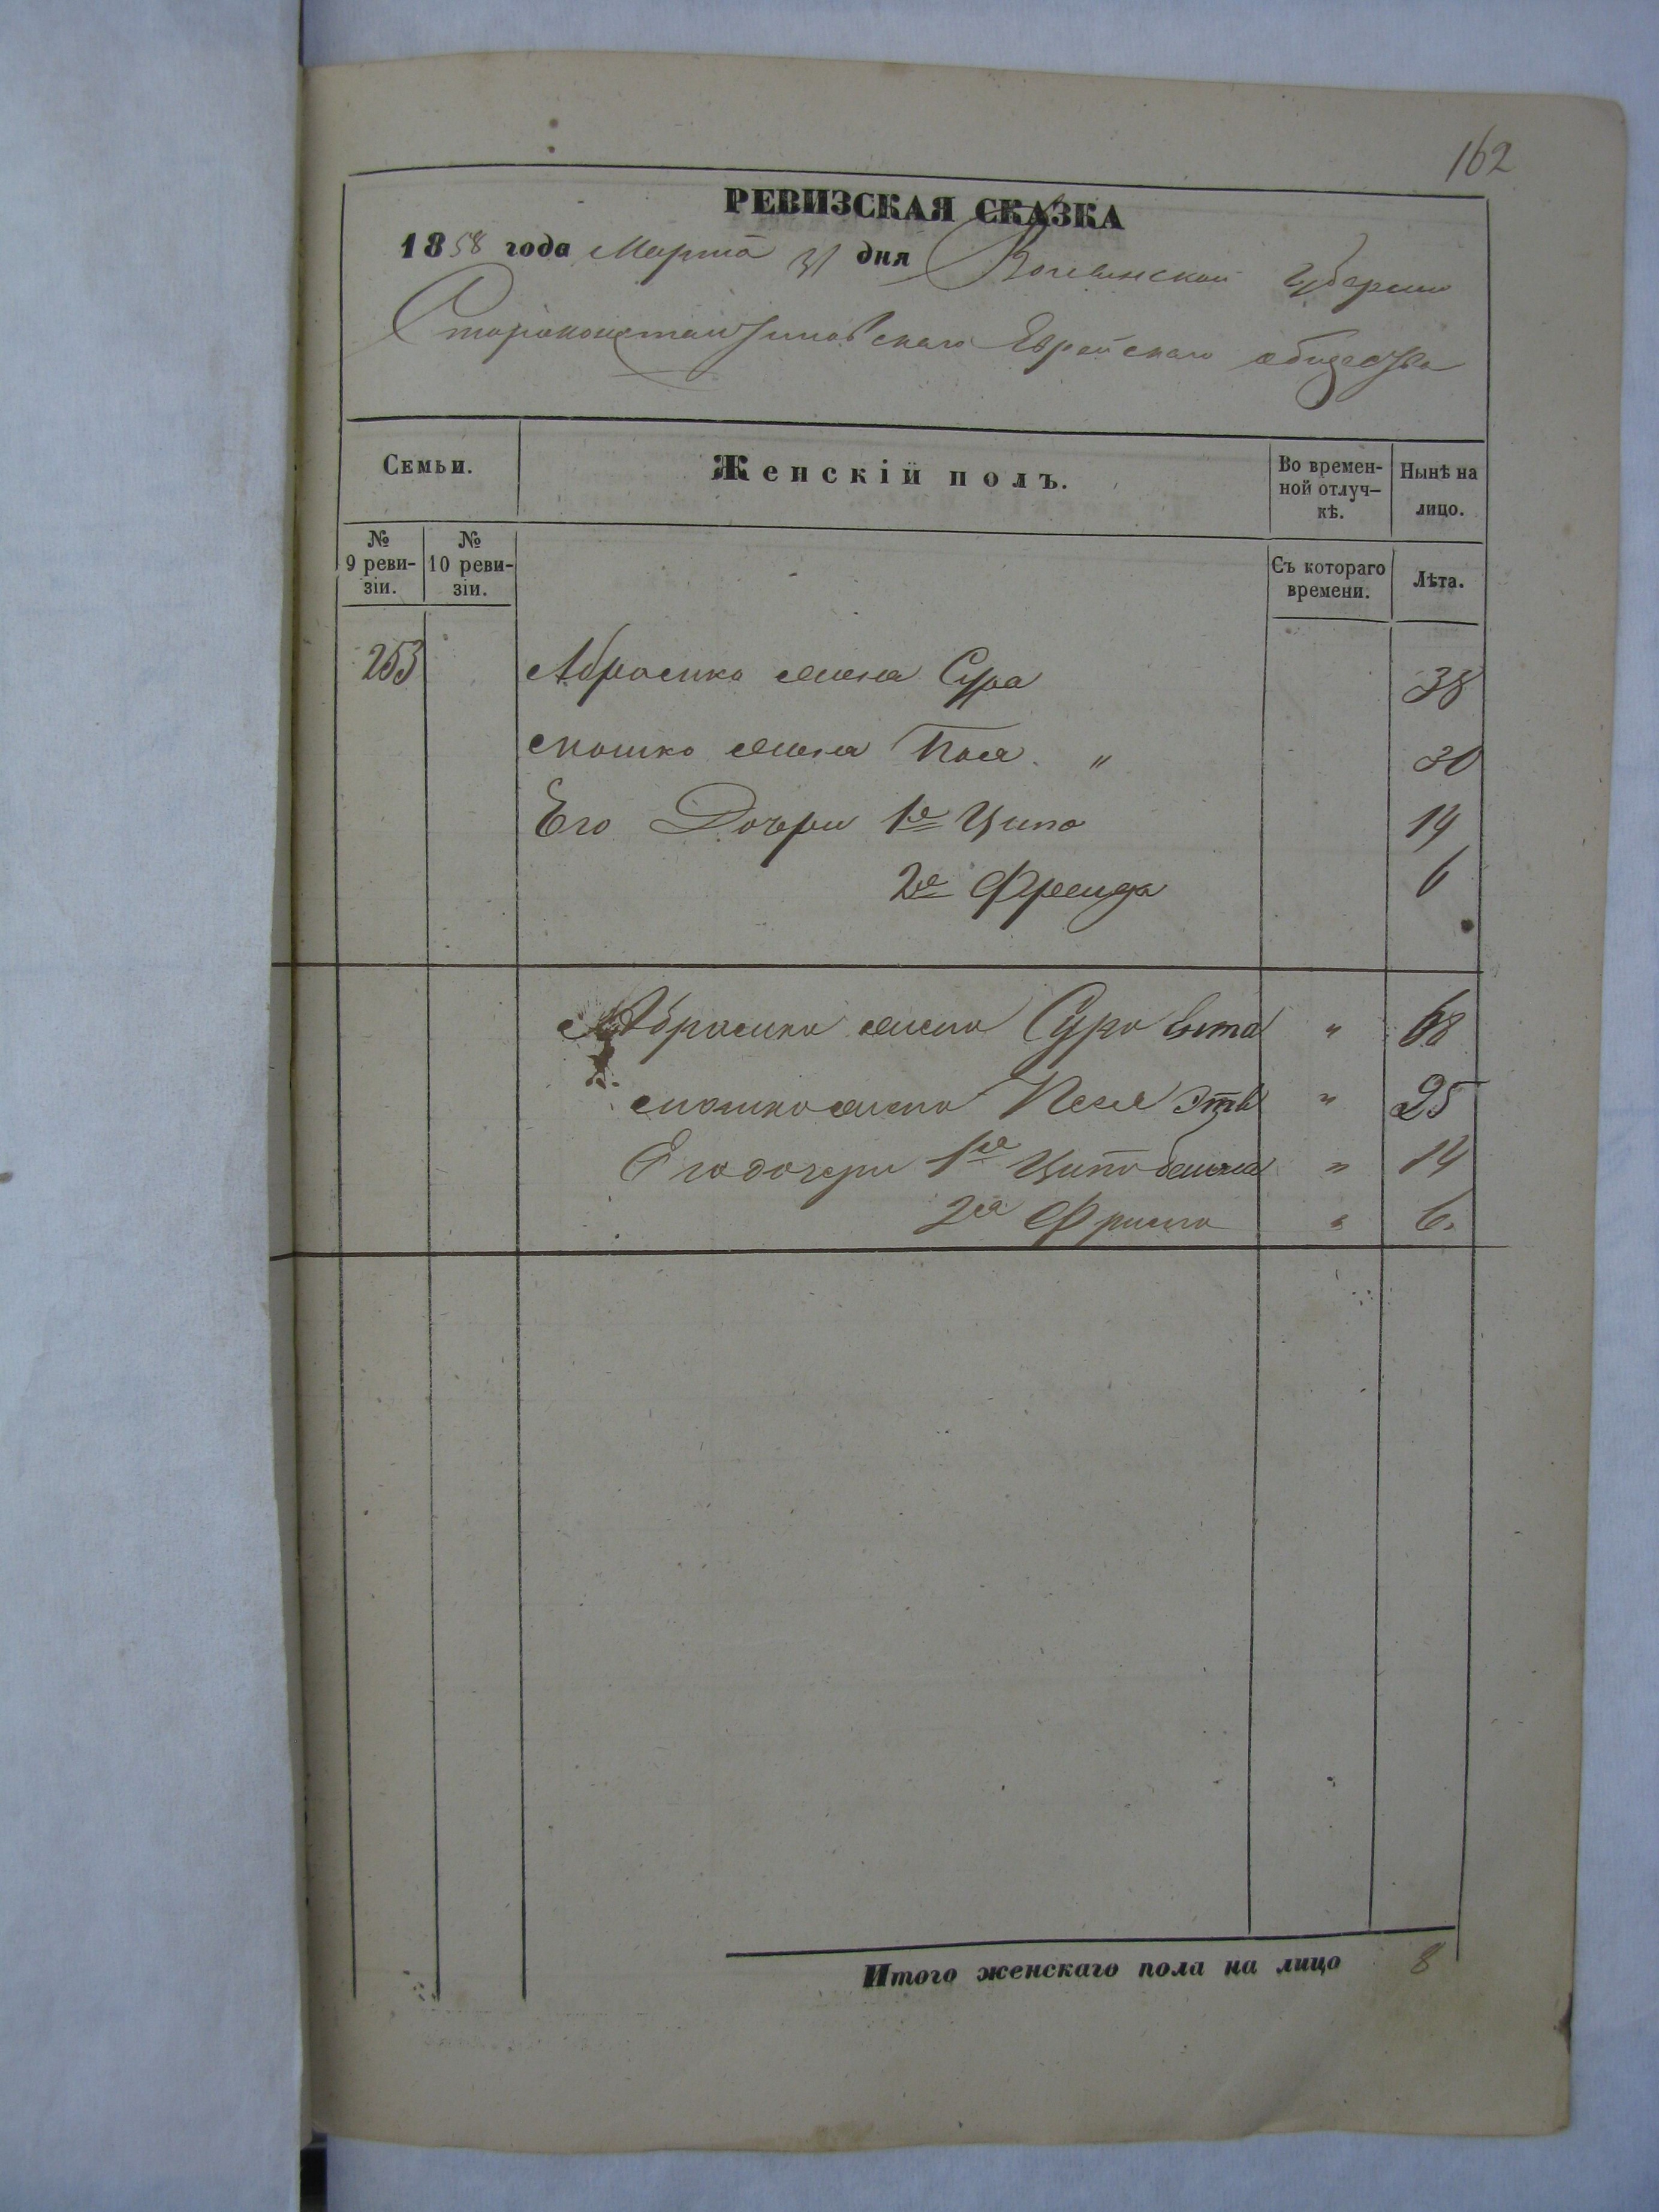 162
РЕВИЗСКАЯ СКАЗКА
1858 года Марта 31 дня Волынской Губернии
Староконстантиновскаго Еврейскаго общества
Семьи.
Женскій полъ.
Во времен-
ной отлуч-
кѣ.
Нынѣ на
лицо.
№
9 реви-
зіи.
№
10 реви-
зіи.
Съ котораго
времени.
Лѣта.
253 Абрамка жена Сура 38
Мошко жена Песя " 30
Его Дочери 1я Ципа 14
2я Фрейда 6
Абрамка жена Сура " 68
Мошко жена Песя " 25
Его дочери 1я Ципа " 14
2я " 6.
Итого женскаго пола на лицо 8